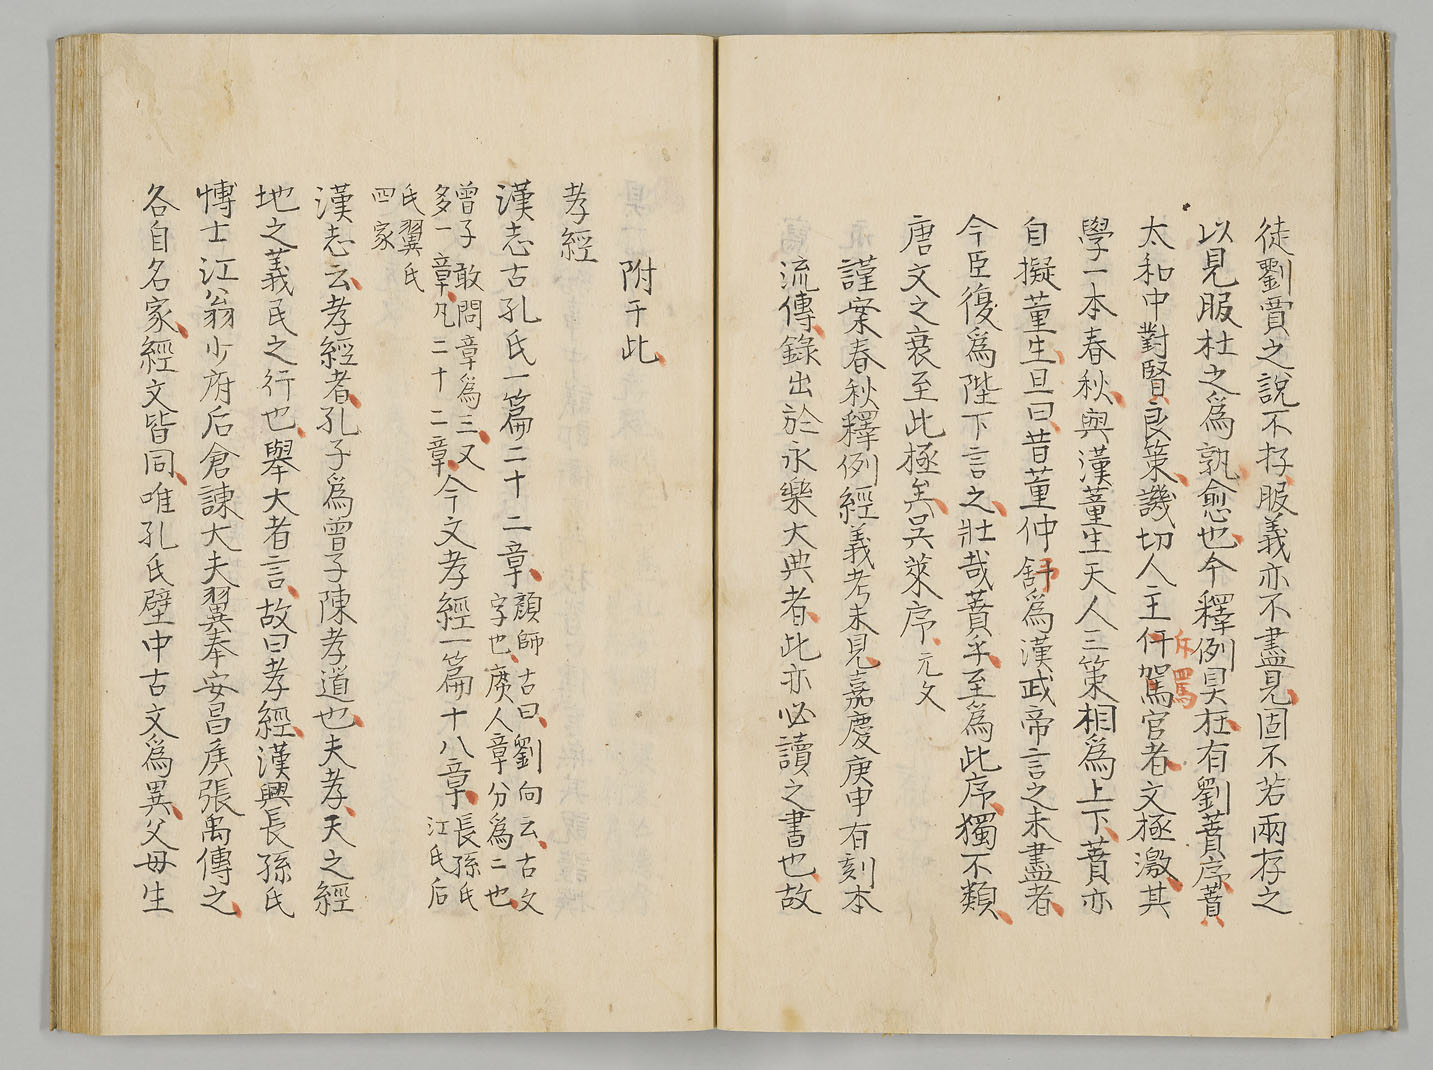 徒劉賈之說不存服義亦不盡見固不若兩存之
以見服杜之爲孰愈也今釋例具在有劉蕡序蕡
太和中對賢良策譏切人主斥罵官者文極激其
學一本春秋與漢董生天人三策相爲上下蕡亦
自擬董生且曰昔董仲舒爲漢武帝言之未盡者
今臣復爲陛下言之壯哉蕡乎至爲此序獨不類
唐文之衰至此極矣吳萊序元文
謹案春秋釋例經義考未見嘉慶庚申有刻本
流傳錄出於永樂大典者此亦必讀之書也故
附于此
孝經
漢志古孔氏一篇二十二章顏師古曰劉向云古文
字也庶人章分爲二也
曾子敢問章爲三又
多一章凡二十二章今文孝經一篇十八章長孫氏
江氏后
氏翼氏
四家
漢志云孝經者孔子爲曾子陳孝道也夫孝天之經
地之義民之行也舉大者言故曰孝經漢興長孫氏
博士江翁少府后倉諫大夫翼奉安昌侯張禹傳之
各自名家經文皆同唯孔氏壁中古文爲異父母生